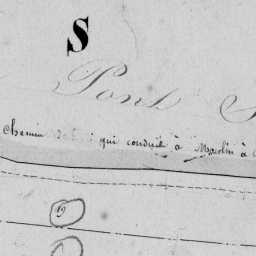 S
Pont S
Chemin qui conduit à Marlin à
19